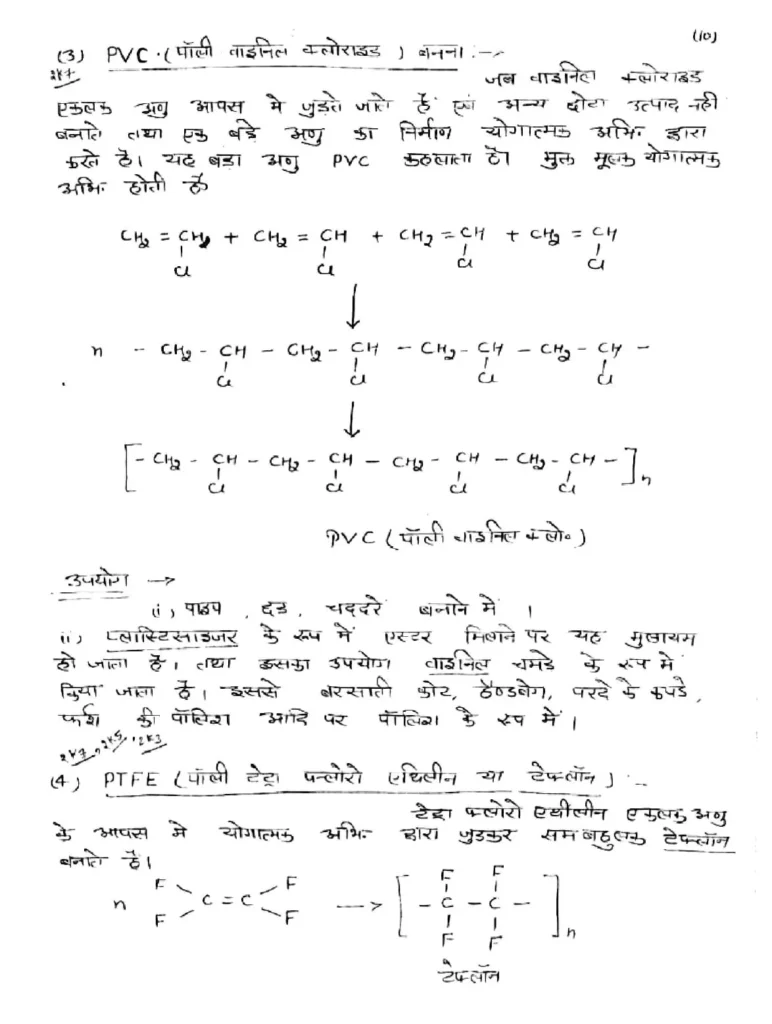 (10)
(3) PVC. (पॉली वाइनिल क्लोराइड ) बनना :-
2k7
जब वाइनिल क्लोराइड
एकलक अणु आपस मे जुड़ते जाते है एवं अन्य छोटा उत्पाद नही
बनाते तथा एक बडे अणु का निर्माण योगात्मक अभि॰ द्वारा
करते है। यह बडा अणु PVC कहलाता है। मुक्त मूलक योगात्मक
अभि॰ होती है
CH2 = CH + CH2 = CH + CH2 = CH + CH2 = CH
Cl Cl Cl Cl
n - CH2 - CH - CH2 - CH - CH2 - CH - CH2 - CH -
Cl Cl Cl Cl
[- CH2 - CH - CH2 - CH - CH2 - CH - CH2 - CH -]n
Cl Cl Cl Cl
PVC (पॉली वाइनिल क्लो॰)
उपयोग →
(i) पाइप , छड , चददरे बनाने में ।
ii) प्लास्टिसाइजर के रूप में एस्टर मिलाने पर यह मुलायम
हो जाता है। तथा इसका उपयोग वाइनिल चमडे के रूप में
किया जाता है। इससे बरसाती कोट, हैण्डबेग, परदे के कपडे,
फर्श की पॉलिश आदि पर पॉलिश के रूप में ।
2k7, 2k5, 2k3
(4) PTFE (पॉली टेट्रा फ्लोरो एथिलीन या टेफ्लॉन) :-
टेट्रा फ्लोरो एथीलीन एकलक अणु
के आपस मे योगात्मक अभि॰ द्वारा जुडकर सम बहुलक टेफ्लॉन
बनाते है।
F F F F
n C = C → [- C - C -]n
F F F F
टेफ्लॉन